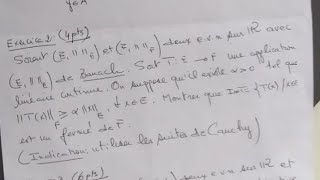 yEA
Exercice 2: (4pts)
Soient (E, || ||_E) et (F, || ||_F) deux e.v.n sur ℝ avec
(E, || ||_E) de Banach. Soit T: E → F une application
linéaire continue. On suppose qu'il existe α>0 tel que
||T(x)||_F ≥ α ||x||_E, ∀x∈E. Montrer que ImT = {T(x)/x∈E
est un fermé de F.
(Indication: utiliser les suites de Cauchy)
(6pts)
e.v.n sur ℝ et